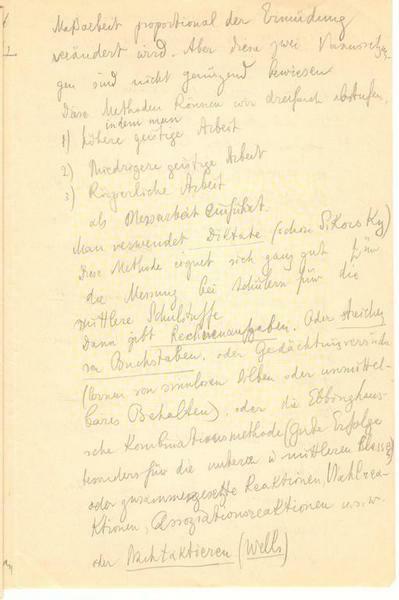 Maßarbeit proportional der Ermüdung
verändert wird. Aber diese zwei
gen sind nicht genügend bewiesen
Diese Methoden können wir dreifach abstufen,
indem man
1) höhere geistige Arbeit
2) Niedrigere geistige Arbeit
3) Körperliche Arbeit
als Messarbeit einführt.
Man verwendet Diktate (schon Sikorsky)
Diese Methode eignet sich ganz gut für
die Messung bei Schülern für die
mittlere Schulstufe
Dann gibt Rechenaufgaben. Oder streichen
von Buchstaben, oder Gedächtnisversuche
(lernen von sinnlosen Silben oder unmittel-
bares Behalten), oder die Ebbinghaus-
sche Kombinationsmethode (Gute Erfolge
besonders für die unteren u mittleren Klassen)
oder zusammengesetzte Reaktionen, Wahlrea-
ktionen, Assoziationsreaktionen u.s.w.
oder (Wells)